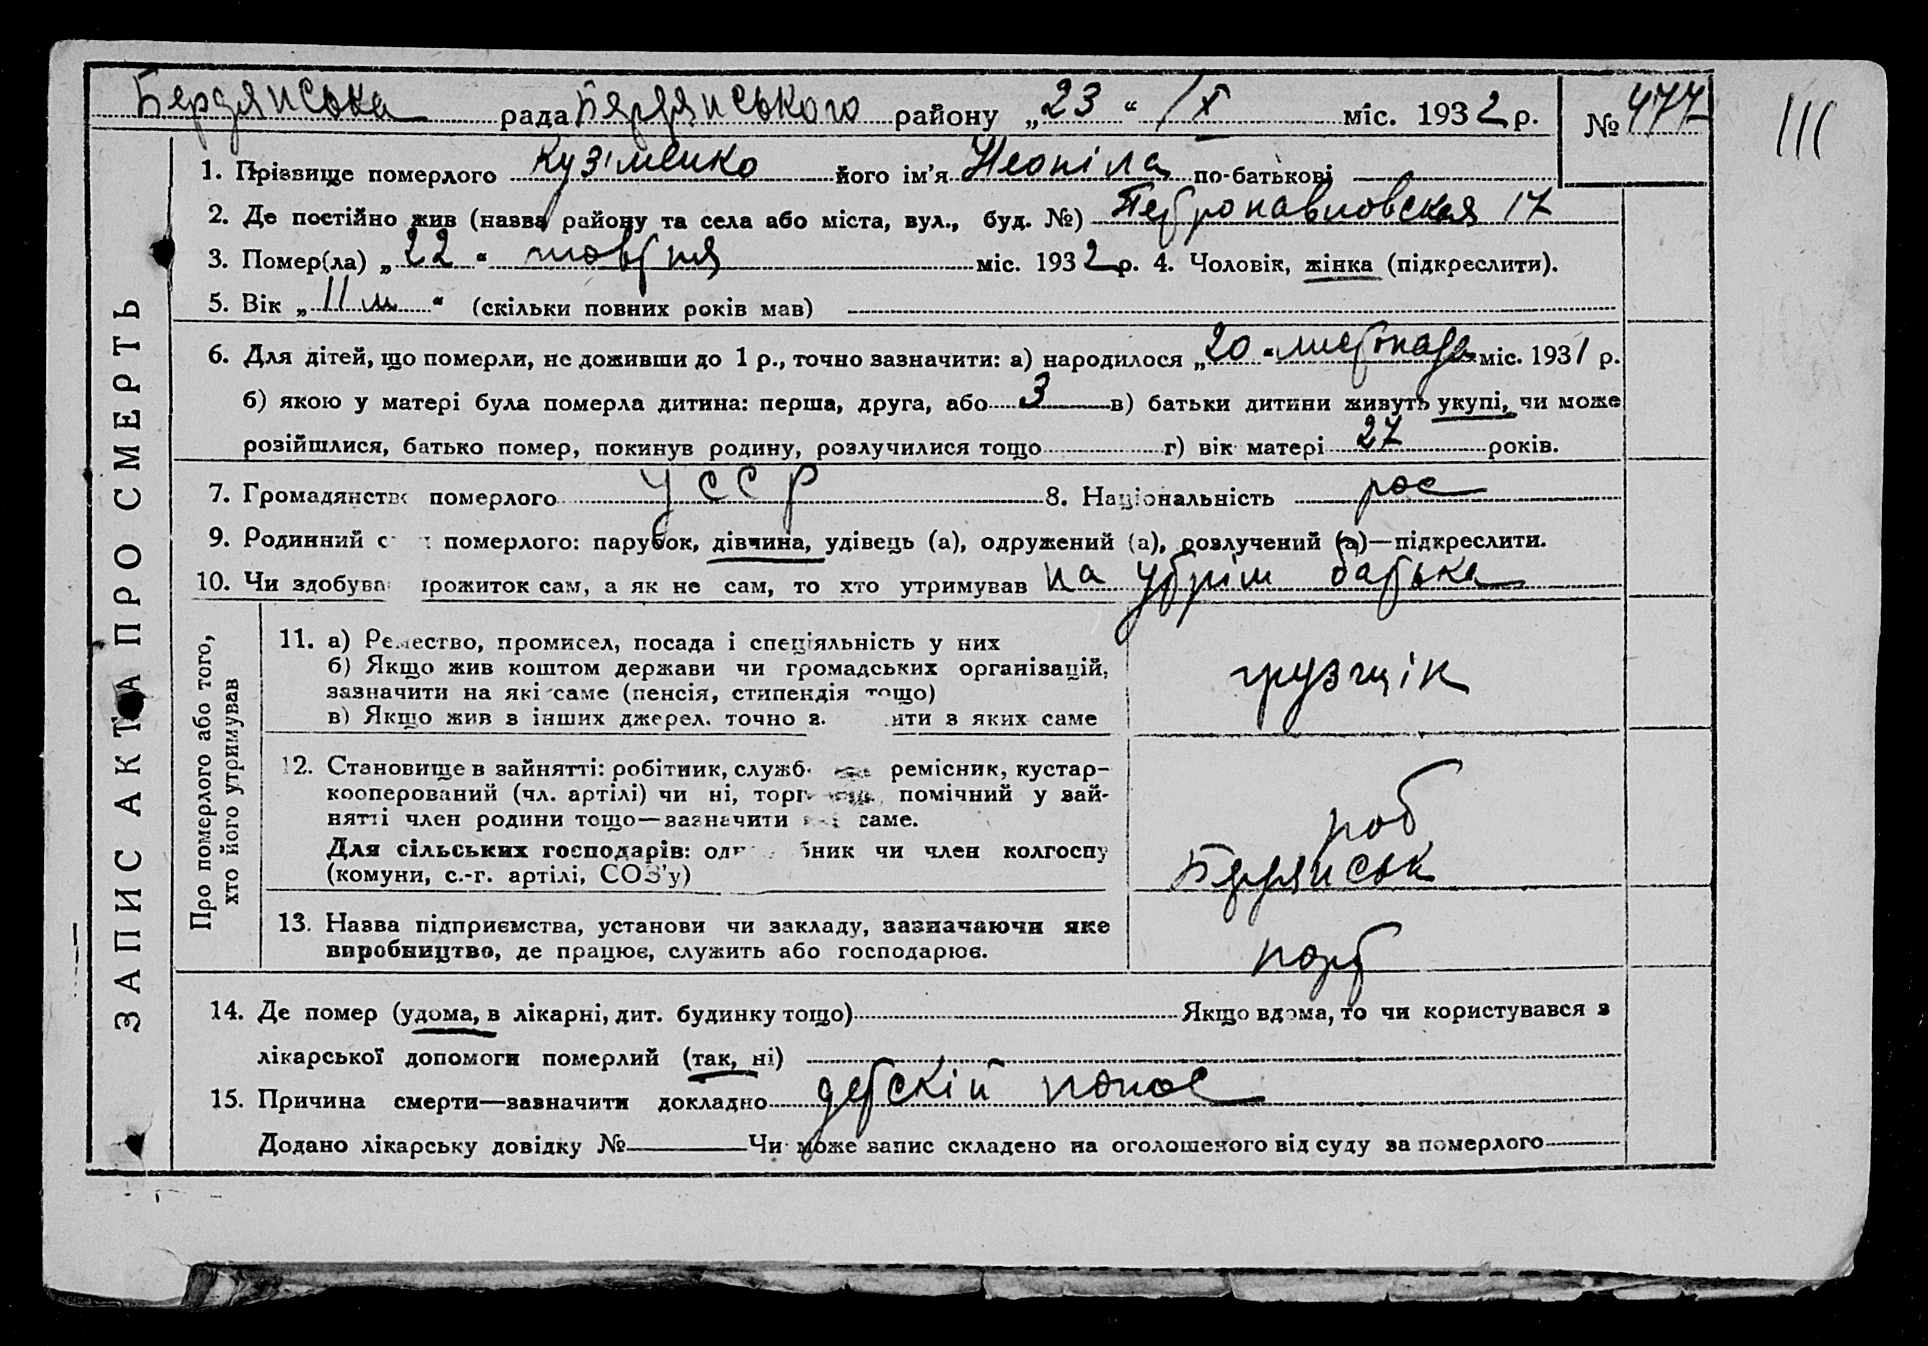 Бердянська рада Бердянського району „23“ /X міс. 1932 р. № 477
111
ЗАПИС АКТА ПРО СМЕРТЬ
1. Прізвище померлого Кузіменко його ім'я Неоніла по-батькові
2. Де постійно жив (назва району та села або міста, вул., буд. №) Петропавловская 17
3. Помер(ла) „22“ жовтня міс. 1932 р. 4. Чоловік, жінка (підкреслити).
5. Вік „11 м“ (скільки повних років мав)
6. Для дітей, що померли, не доживши до 1 р., точно зазначити: а) народилося „20“ листопада міс. 1931 р.
б) якою у матері була померла дитина: перша, друга, або 3 в) батьки дитини живуть укупі, чи може
розійшлися, батько помер, покинув родину, розлучилися тощо г) вік матері 27 років.
7. Громадянство померлого УССР 8. Національність рос
9. Родинний с померлого: парубок, дівчина, удівець (а), одружений (а), розлучений (а)—підкреслити.
10. Чи здобува прожиток сам, а як не сам, то хто утримував на утрім батька
Про померлого або того,
хто його утримував
11. а) Ремество, промисел, посада і спеціяльність у них
б) Якщо жив коштом держави чи громадських організацій,
зазначити на які саме (пенсія, стипендія тощо)
в) Якщо жив з інших джерел, точно з ити з яких саме
грузщік
12. Становище в зайнятті: робітник, служб ремісник, кустар-
кооперований (чл. артілі) чи ні, торг помічний у зай-
нятті член родини тощо—зазначити саме.
Для сільських господарів: од бник чи член колгоспу
(комуни, с.-г. артілі, СОЗ'у)
роб
13. Назва підприємства, установи чи закладу, зазначаючи яке
виробництво, де працює, служить або господарює.
Бердянськ
порт
14. Де помер (удома, в лікарні, дит. будинку тощо) Якщо вдома, то чи користувався з
лікарської допомоги померлий (так, ні)
15. Причина смерти—зазначити докладно детскій понос
Додано лікарську довідку № Чи може запис складено на оголошеного від суду за померлого